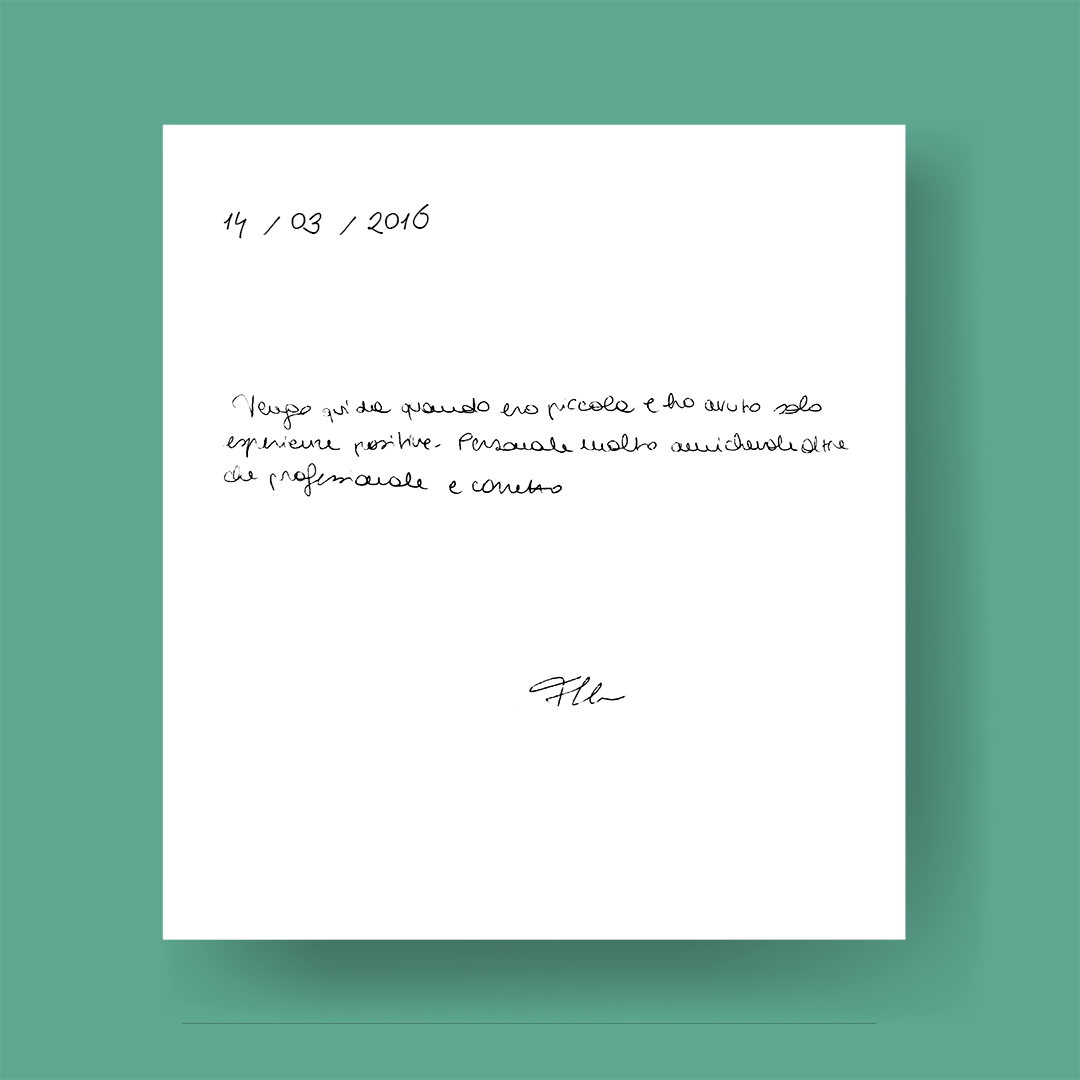 14 / 03 / 2016
Vengo qui da quando ero piccola e ho avuto solo
esperienze positive. Personale molto amichevole oltre
che professionale e corretto